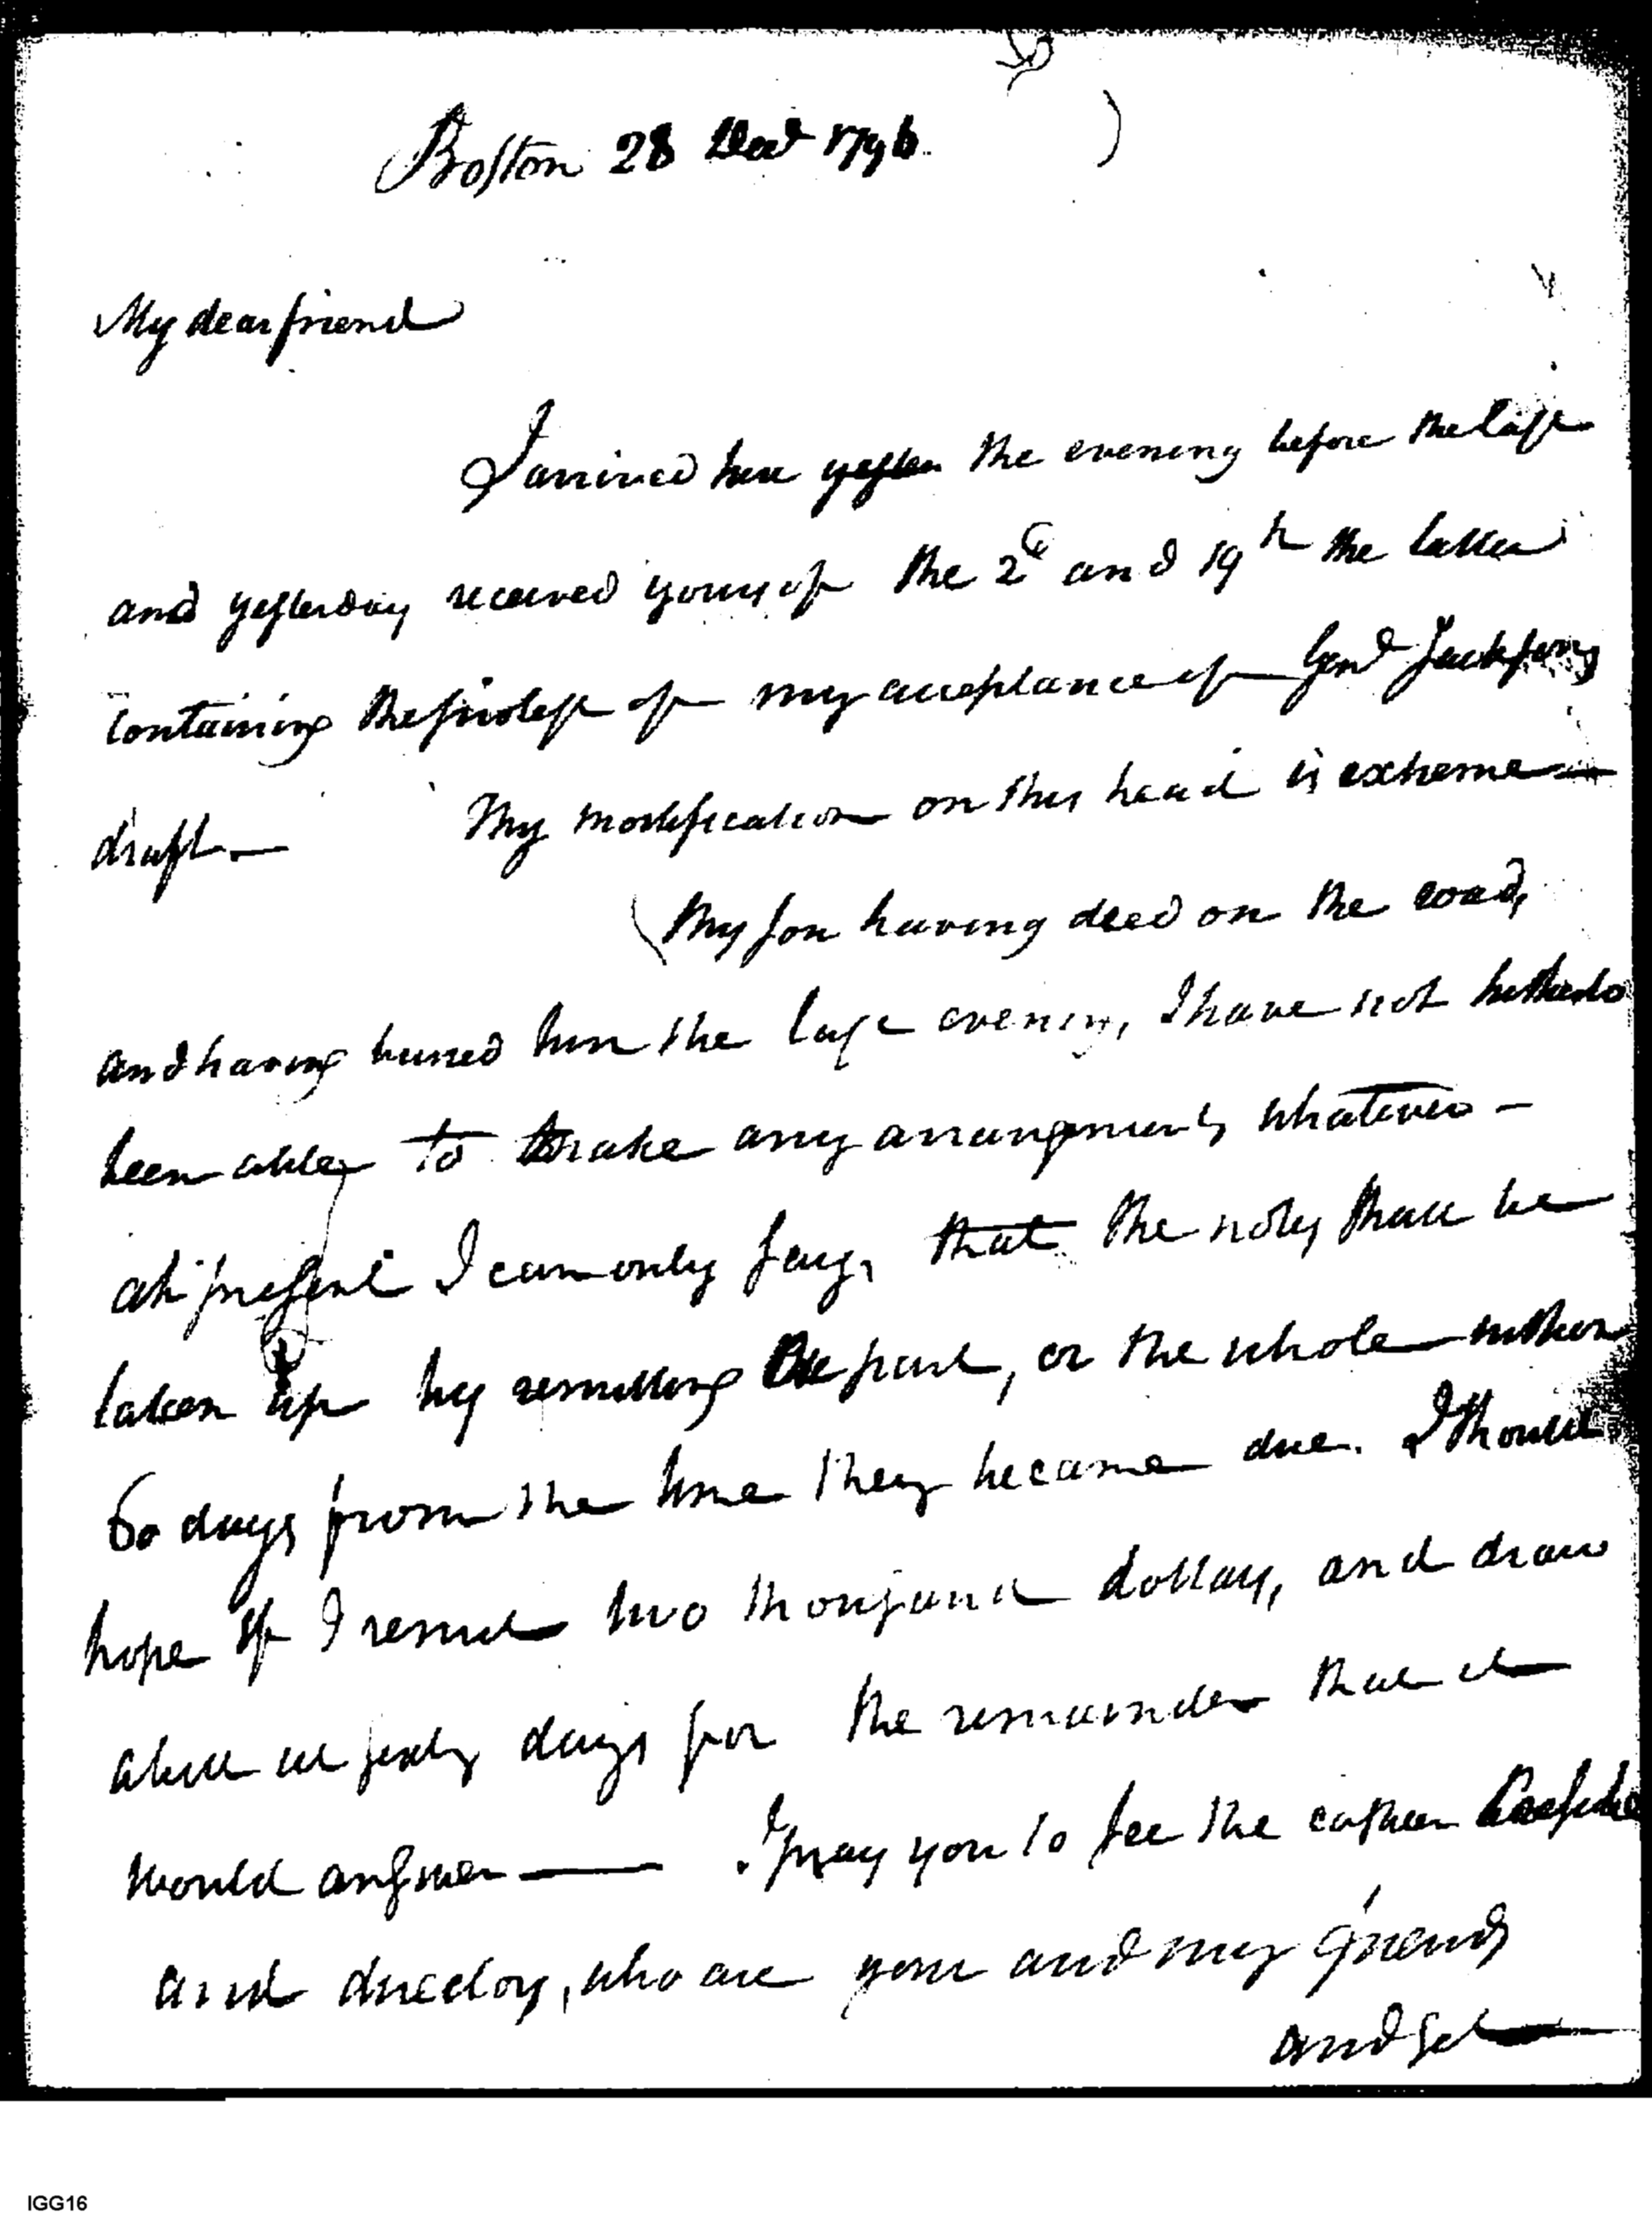 Boston 28 Decr 1796.
My dear friend
I arrived here the evening before the last
and yesterday received yours of the 2d and 19th the latter
containing the protest of my acceptance of Genl Jacksons
draft — My mortification on this head is extreme —
(My son having died on the road,
and having buried him the last evening, I have not hitherto
been able to make any arrangements whatever —
at present I can only say, that the notes shall be
taken up by remitting part, or the whole within
60 days from the time they became due. I should
hope if I remit two thousand dollars, and draw
a bill at sixty days for the remainder that it
would answer — I pray you to see the cashier
and directors, who are your and my friends
and get
IGG16